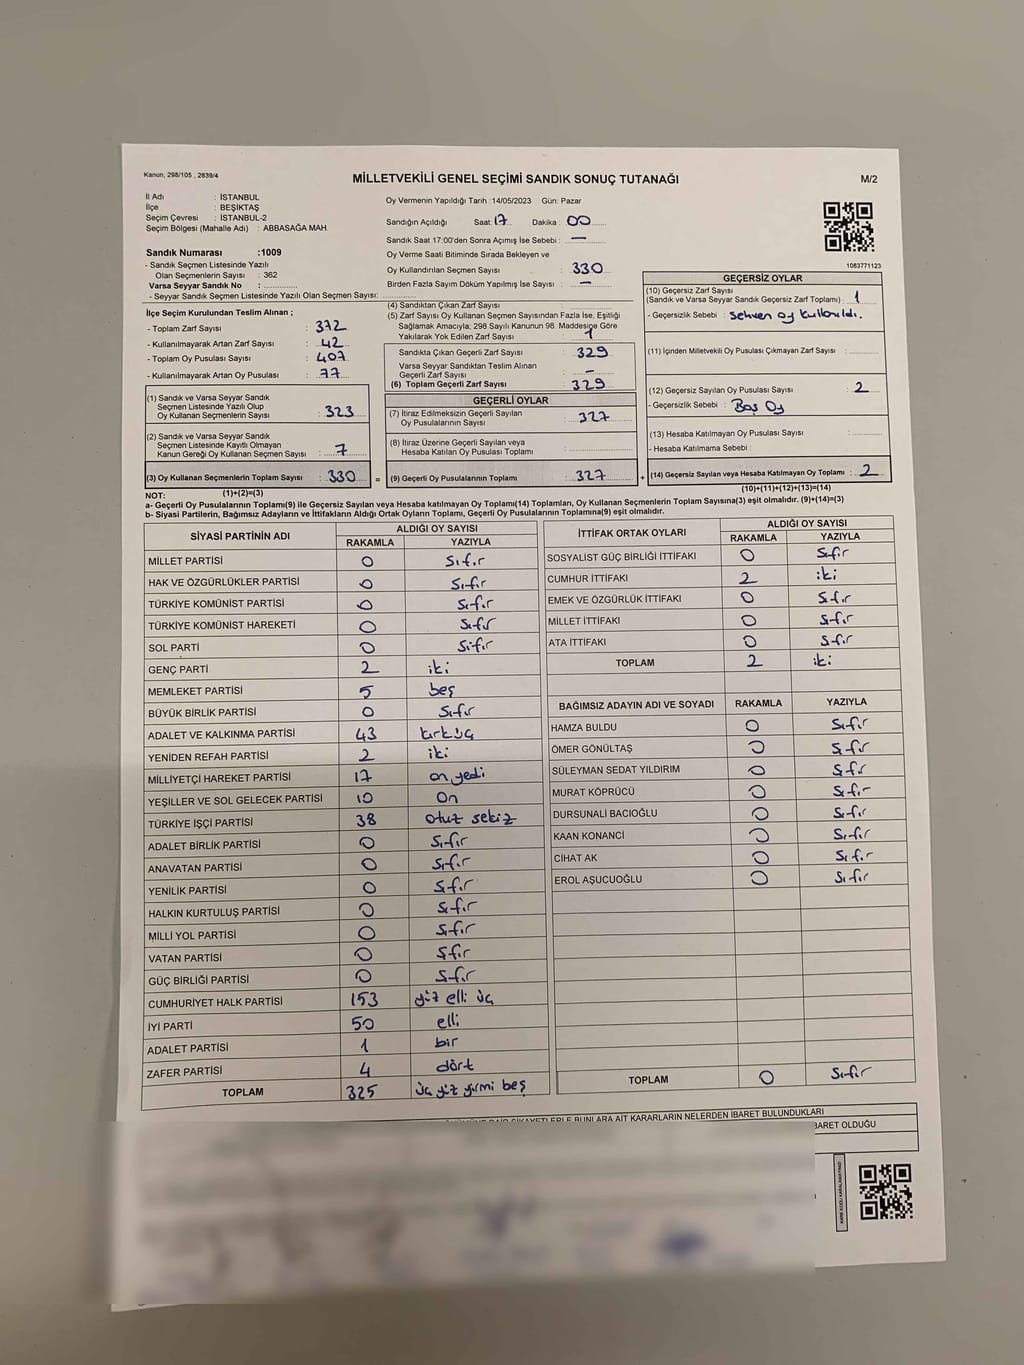 Kanun, 298/105 , 2839/4
MİLLETVEKİLİ GENEL SEÇİMİ SANDIK SONUÇ TUTANAĞI
M/2
İl Adı : İSTANBUL
İlçe : BEŞİKTAŞ
Seçim Çevresi : İSTANBUL-2
Seçim Bölgesi (Mahalle Adı) : ABBASAĞA MAH.
Sandık Numarası :1009
- Sandık Seçmen Listesinde Yazılı
Olan Seçmenlerin Sayısı : 362
Varsa Seyyar Sandık No :
- Seyyar Sandık Seçmen Listesinde Yazılı Olan Seçmen Sayısı:
Oy Vermenin Yapıldığı Tarih :14/05/2023 Gün: Pazar
Sandığın Açıldığı Saat: 17 Dakika : 00
Sandık Saat 17:00'den Sonra Açımış İse Sebebi : —
Oy Verme Saati Bitiminde Sırada Bekleyen ve
Oy Kullandırılan Seçmen Sayısı : 330
Birden Fazla Sayım Döküm Yapılmış İse Sayısı : —
1083771123
İlçe Seçim Kurulundan Teslim Alınan ;
- Toplam Zarf Sayısı : 372
- Kullanılmayarak Artan Zarf Sayısı : 42
- Toplam Oy Pusulası Sayısı : 407
- Kullanılmayarak Artan Oy Pusulası : 77
(1) Sandık ve Varsa Seyyar Sandık
Seçmen Listesinde Yazılı Olup
Oy Kullanan Seçmenlerin Sayısı : 323
(2) Sandık ve Varsa Seyyar Sandık
Seçmen Listesinde Kayıtlı Olmayan
Kanun Gereği Oy Kullanan Seçmen Sayısı : 7
(3) Oy Kullanan Seçmenlerin Toplam Sayısı : 330
(1)+(2)=(3)
(4) Sandıktan Çıkan Zarf Sayısı :
(5) Zarf Sayısı Oy Kullanan Seçmen Sayısından Fazla İse, Eşitliği
Sağlamak Amacıyla; 298 Sayılı Kanunun 98. Maddesine Göre
Yakılarak Yok Edilen Zarf Sayısı : 1
Sandıkta Çıkan Geçerli Zarf Sayısı : 329
Varsa Seyyar Sandıktan Teslim Alınan
Geçerli Zarf Sayısı : —
(6) Toplam Geçerli Zarf Sayısı : 329
GEÇERLİ OYLAR
(7) İtiraz Edilmeksizin Geçerli Sayılan
Oy Pusulalarının Sayısı : 327
(8) İtiraz Üzerine Geçerli Sayılan veya
Hesaba Katılan Oy Pusulası Toplamı :
= (9) Geçerli Oy Pusulalarının Toplamı : 327
GEÇERSİZ OYLAR
(10) Geçersiz Zarf Sayısı
(Sandık ve Varsa Seyyar Sandık Geçersiz Zarf Toplamı) : 1
- Geçersizlik Sebebi : Sehven oy kullanıldı.
(11) İçinden Milletvekili Oy Pusulası Çıkmayan Zarf Sayısı :
(12) Geçersiz Sayılan Oy Pusulası Sayısı : 2
- Geçersizlik Sebebi : Boş Oy
(13) Hesaba Katılmayan Oy Pusulası Sayısı :
- Hesaba Katılmama Sebebi :
+ (14) Geçersiz Sayılan veya Hesaba Katılmayan Oy Toplamı : 2
(10)+(11)+(12)+(13)=(14)
NOT:
a- Geçerli Oy Pusulalarının Toplamı(9) ile Geçersiz Sayılan veya Hesaba katılmayan Oy Toplamı(14) Toplamları, Oy Kullanan Seçmenlerin Toplam Sayısına(3) eşit olmalıdır. (9)+(14)=(3)
b- Siyasi Partilerin, Bağımsız Adayların ve İttifakların Aldığı Ortak Oyların Toplamı, Geçerli Oy Pusulalarının Toplamına(9) eşit olmalıdır.
SİYASİ PARTİNİN ADI
ALDIĞI OY SAYISI
RAKAMLA YAZIYLA
MİLLET PARTİSİ 0 Sıfır
HAK VE ÖZGÜRLÜKLER PARTİSİ 0 Sıfır
TÜRKİYE KOMÜNİST PARTİSİ 0 Sıfır
TÜRKİYE KOMÜNİST HAREKETİ 0 Sıfır
SOL PARTİ 0 Sıfır
GENÇ PARTİ 2 iki
MEMLEKET PARTİSİ 5 beş
BÜYÜK BİRLİK PARTİSİ 0 Sıfır
ADALET VE KALKINMA PARTİSİ 43 kırküç
YENİDEN REFAH PARTİSİ 2 iki
MİLLİYETÇİ HAREKET PARTİSİ 17 on yedi
YEŞİLLER VE SOL GELECEK PARTİSİ 10 On
TÜRKİYE İŞÇİ PARTİSİ 38 otuz sekiz
ADALET BİRLİK PARTİSİ 0 Sıfır
ANAVATAN PARTİSİ 0 Sıfır
YENİLİK PARTİSİ 0 Sıfır
HALKIN KURTULUŞ PARTİSİ 0 Sıfır
MİLLİ YOL PARTİSİ 0 Sıfır
VATAN PARTİSİ 0 Sıfır
GÜÇ BİRLİĞİ PARTİSİ 0 Sıfır
CUMHURİYET HALK PARTİSİ 153 yüz elli üç
İYİ PARTİ 50 elli
ADALET PARTİSİ 1 bir
ZAFER PARTİSİ 4 dört
TOPLAM 325 üç yüz yirmi beş
İTTİFAK ORTAK OYLARI
ALDIĞI OY SAYISI
RAKAMLA YAZIYLA
SOSYALİST GÜÇ BİRLİĞİ İTTİFAKI 0 Sıfır
CUMHUR İTTİFAKI 2 iki
EMEK VE ÖZGÜRLÜK İTTİFAKI 0 Sıfır
MİLLET İTTİFAKI 0 Sıfır
ATA İTTİFAKI 0 Sıfır
TOPLAM 2 iki
BAĞIMSIZ ADAYIN ADI VE SOYADI RAKAMLA YAZIYLA
HAMZA BULDU 0 Sıfır
ÖMER GÖNÜLTAŞ 0 Sıfır
SÜLEYMAN SEDAT YILDIRIM 0 Sıfır
MURAT KÖPRÜCÜ 0 Sıfır
DURSUNALİ BACIOĞLU 0 Sıfır
KAAN KONANCİ 0 Sıfır
CİHAT AK 0 Sıfır
EROL AŞUCUOĞLU 0 Sıfır
TOPLAM 0 Sıfır
BUNLARA AİT KARARLARIN NELERDEN İBARET BULUNDUKLARI
BARET OLDUĞU